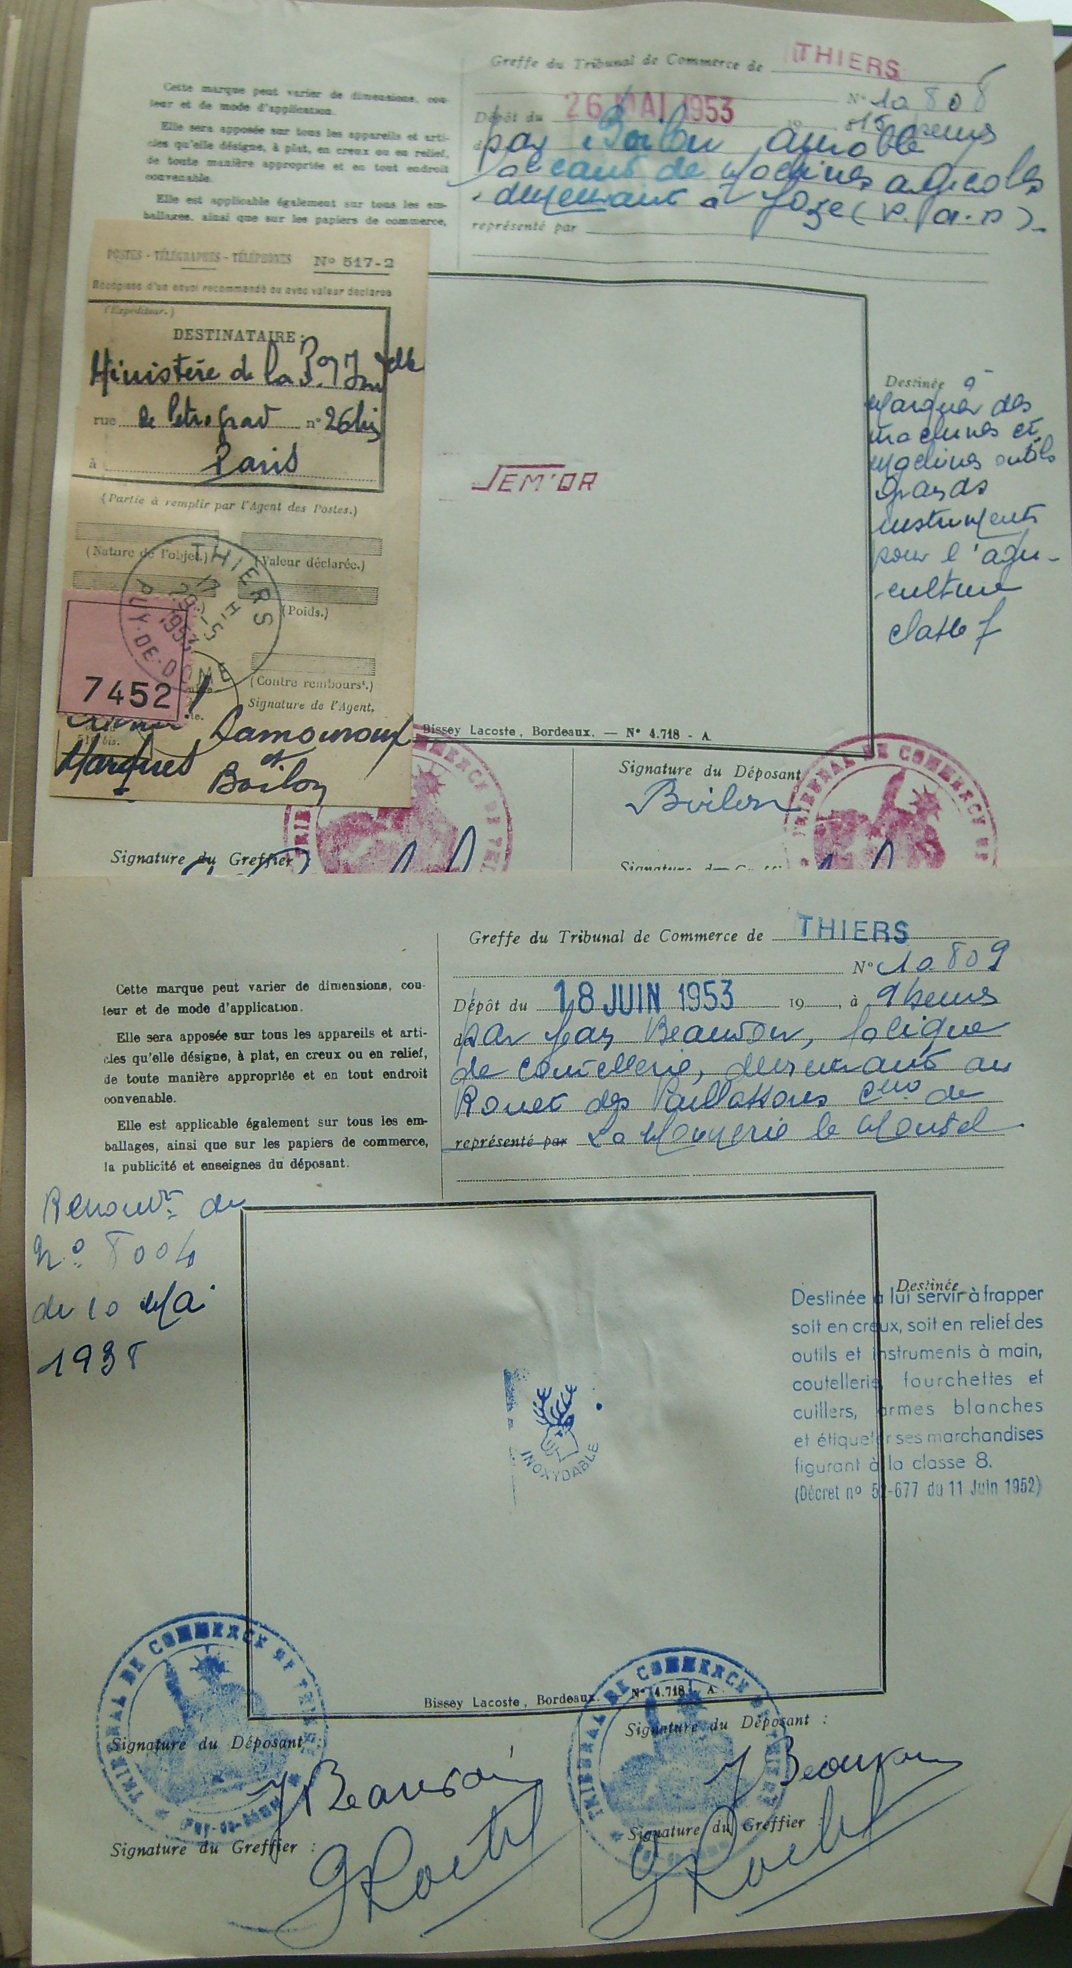 Greffe du Tribunal de Commerce de THIERS
Nº 10808
Dépôt du 26 MAI 1953 19 , à 15 heures
par Boilon
de Machines agricoles
demeurant à Joze (P. de D).
représenté par
Cette marque peut varier de dimensions, cou-
leur et de mode d'application.
Elle sera apposée sur tous les appareils et arti-
cles qu'elle désigne, à plat, en creux ou en relief,
de toute manière appropriée et en tout endroit
convenable.
Elle est applicable également sur tous les em-
ballages, ainsi que sur les papiers de commerce,
POSTES - TÉLÉGRAPHES - TÉLÉPHONES Nº 517-2
Récépissé d'un envoi recommandé ou avec valeur déclarée
(Expéditeur.)
DESTINATAIRE :
Ministère de la Pon Indelle
rue de Petrograd nº 26 bis
à Paris
(Partie à remplir par l'Agent des Postes.)
(Nature de l'objet.) (Valeur déclarée.)
(Poids.)
(Contre rembourst.)
Signature de l'Agent,
THIERS
17 H
29-5
1953
PUY-DE-DOME
7452
Damouroux
Marques et
Boilon
JEM'OR
Destinée à
marquer des
machines et
machines outils
grands
instruments
pour l'agri-
culture
classe 7
Bissey Lacoste, Bordeaux. — Nº 4.718 - A
Signature du Déposant
Boilon
TRIBUNAL DE COMMERCE
Signature du Greffier
Greffe du Tribunal de Commerce de THIERS
Nº 10809
Dépôt du 18 JUIN 1953 19 , à 9 heures
par Jean Beauvoir, fabrique
de coutellerie, demeurant au
Rouet des Paillassons cne de
représenté par La Monnerie le Montel
Cette marque peut varier de dimensions, cou-
leur et de mode d'application.
Elle sera apposée sur tous les appareils et arti-
cles qu'elle désigne, à plat, en creux ou en relief,
de toute manière appropriée et en tout endroit
convenable.
Elle est applicable également sur tous les em-
ballages, ainsi que sur les papiers de commerce,
la publicité et enseignes du déposant.
Renouvt du
Nº 8004
du 10 Mai
1938
INOXYDABLE
Destinée
Destinée à lui servir à frapper
soit en creux, soit en relief des
outils et instruments à main,
coutellerie, fourchettes et
cuillers, armes blanches
et étiqueter ses marchandises
figurant à la classe 8.
(Décret nº 52-677 du 11 Juin 1952)
Bissey Lacoste, Bordeaux. Nº 4.718 - A
TRIBUNAL DE COMMERCE DE THIERS
TRIBUNAL DE COMMERCE DE THIERS
Signature du Déposant : Signature du Déposant :
J Beauvoir J Beauvoir
Signature du Greffier : Signature du Greffier